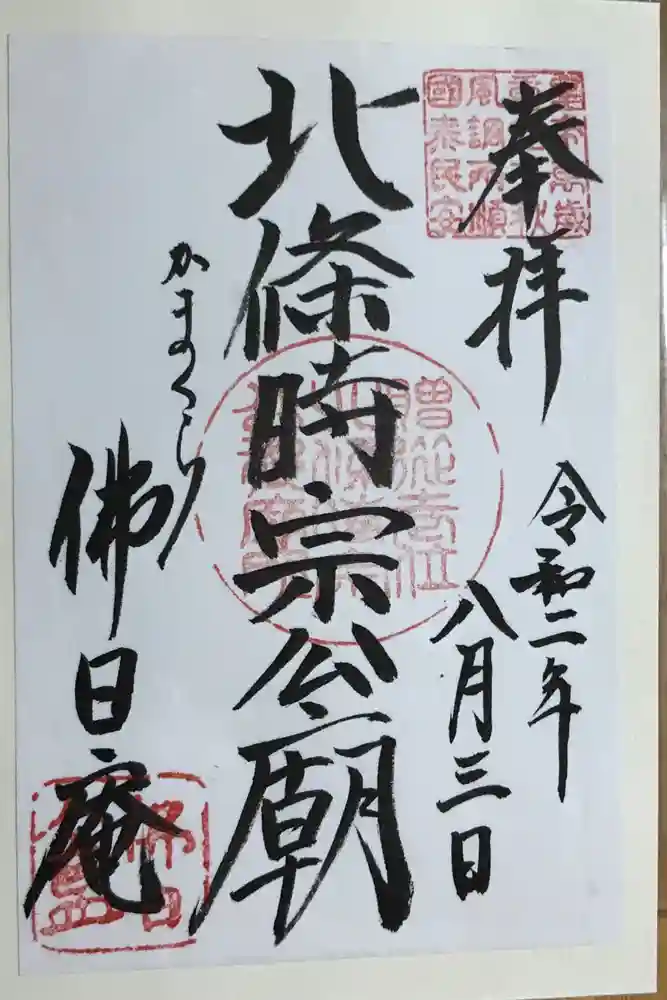 奉拝
令和二年
八月三日
北條時宗公廟
かまくら
佛日庵
國泰民安